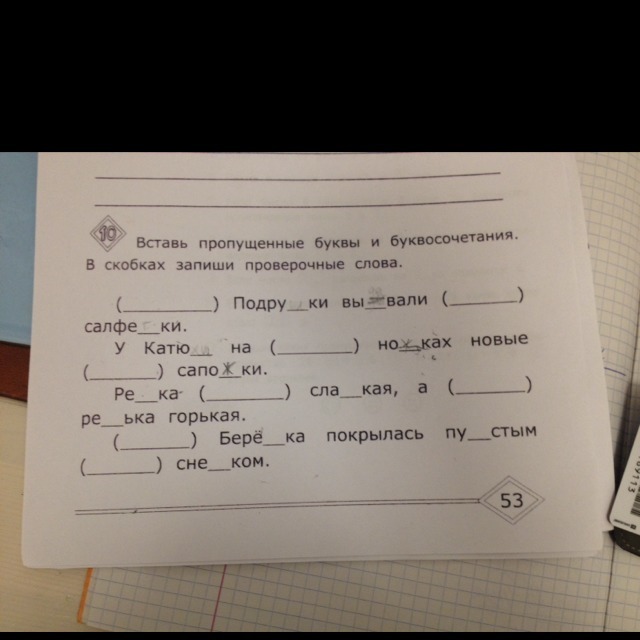 10 Вставь пропущенные буквы и буквосочетания.
В скобках запиши проверочные слова.
(__________) Подру__ки вы__вали (________)
салфе__ки.
У Катю__ на (________) но__ках новые
(_______) сапож_ки.
Ре__ка (_________) сла__кая, а (________)
ре__ька горькая.
(________) Берё__ка покрылась пу__стым
(________) сне__ком.
53